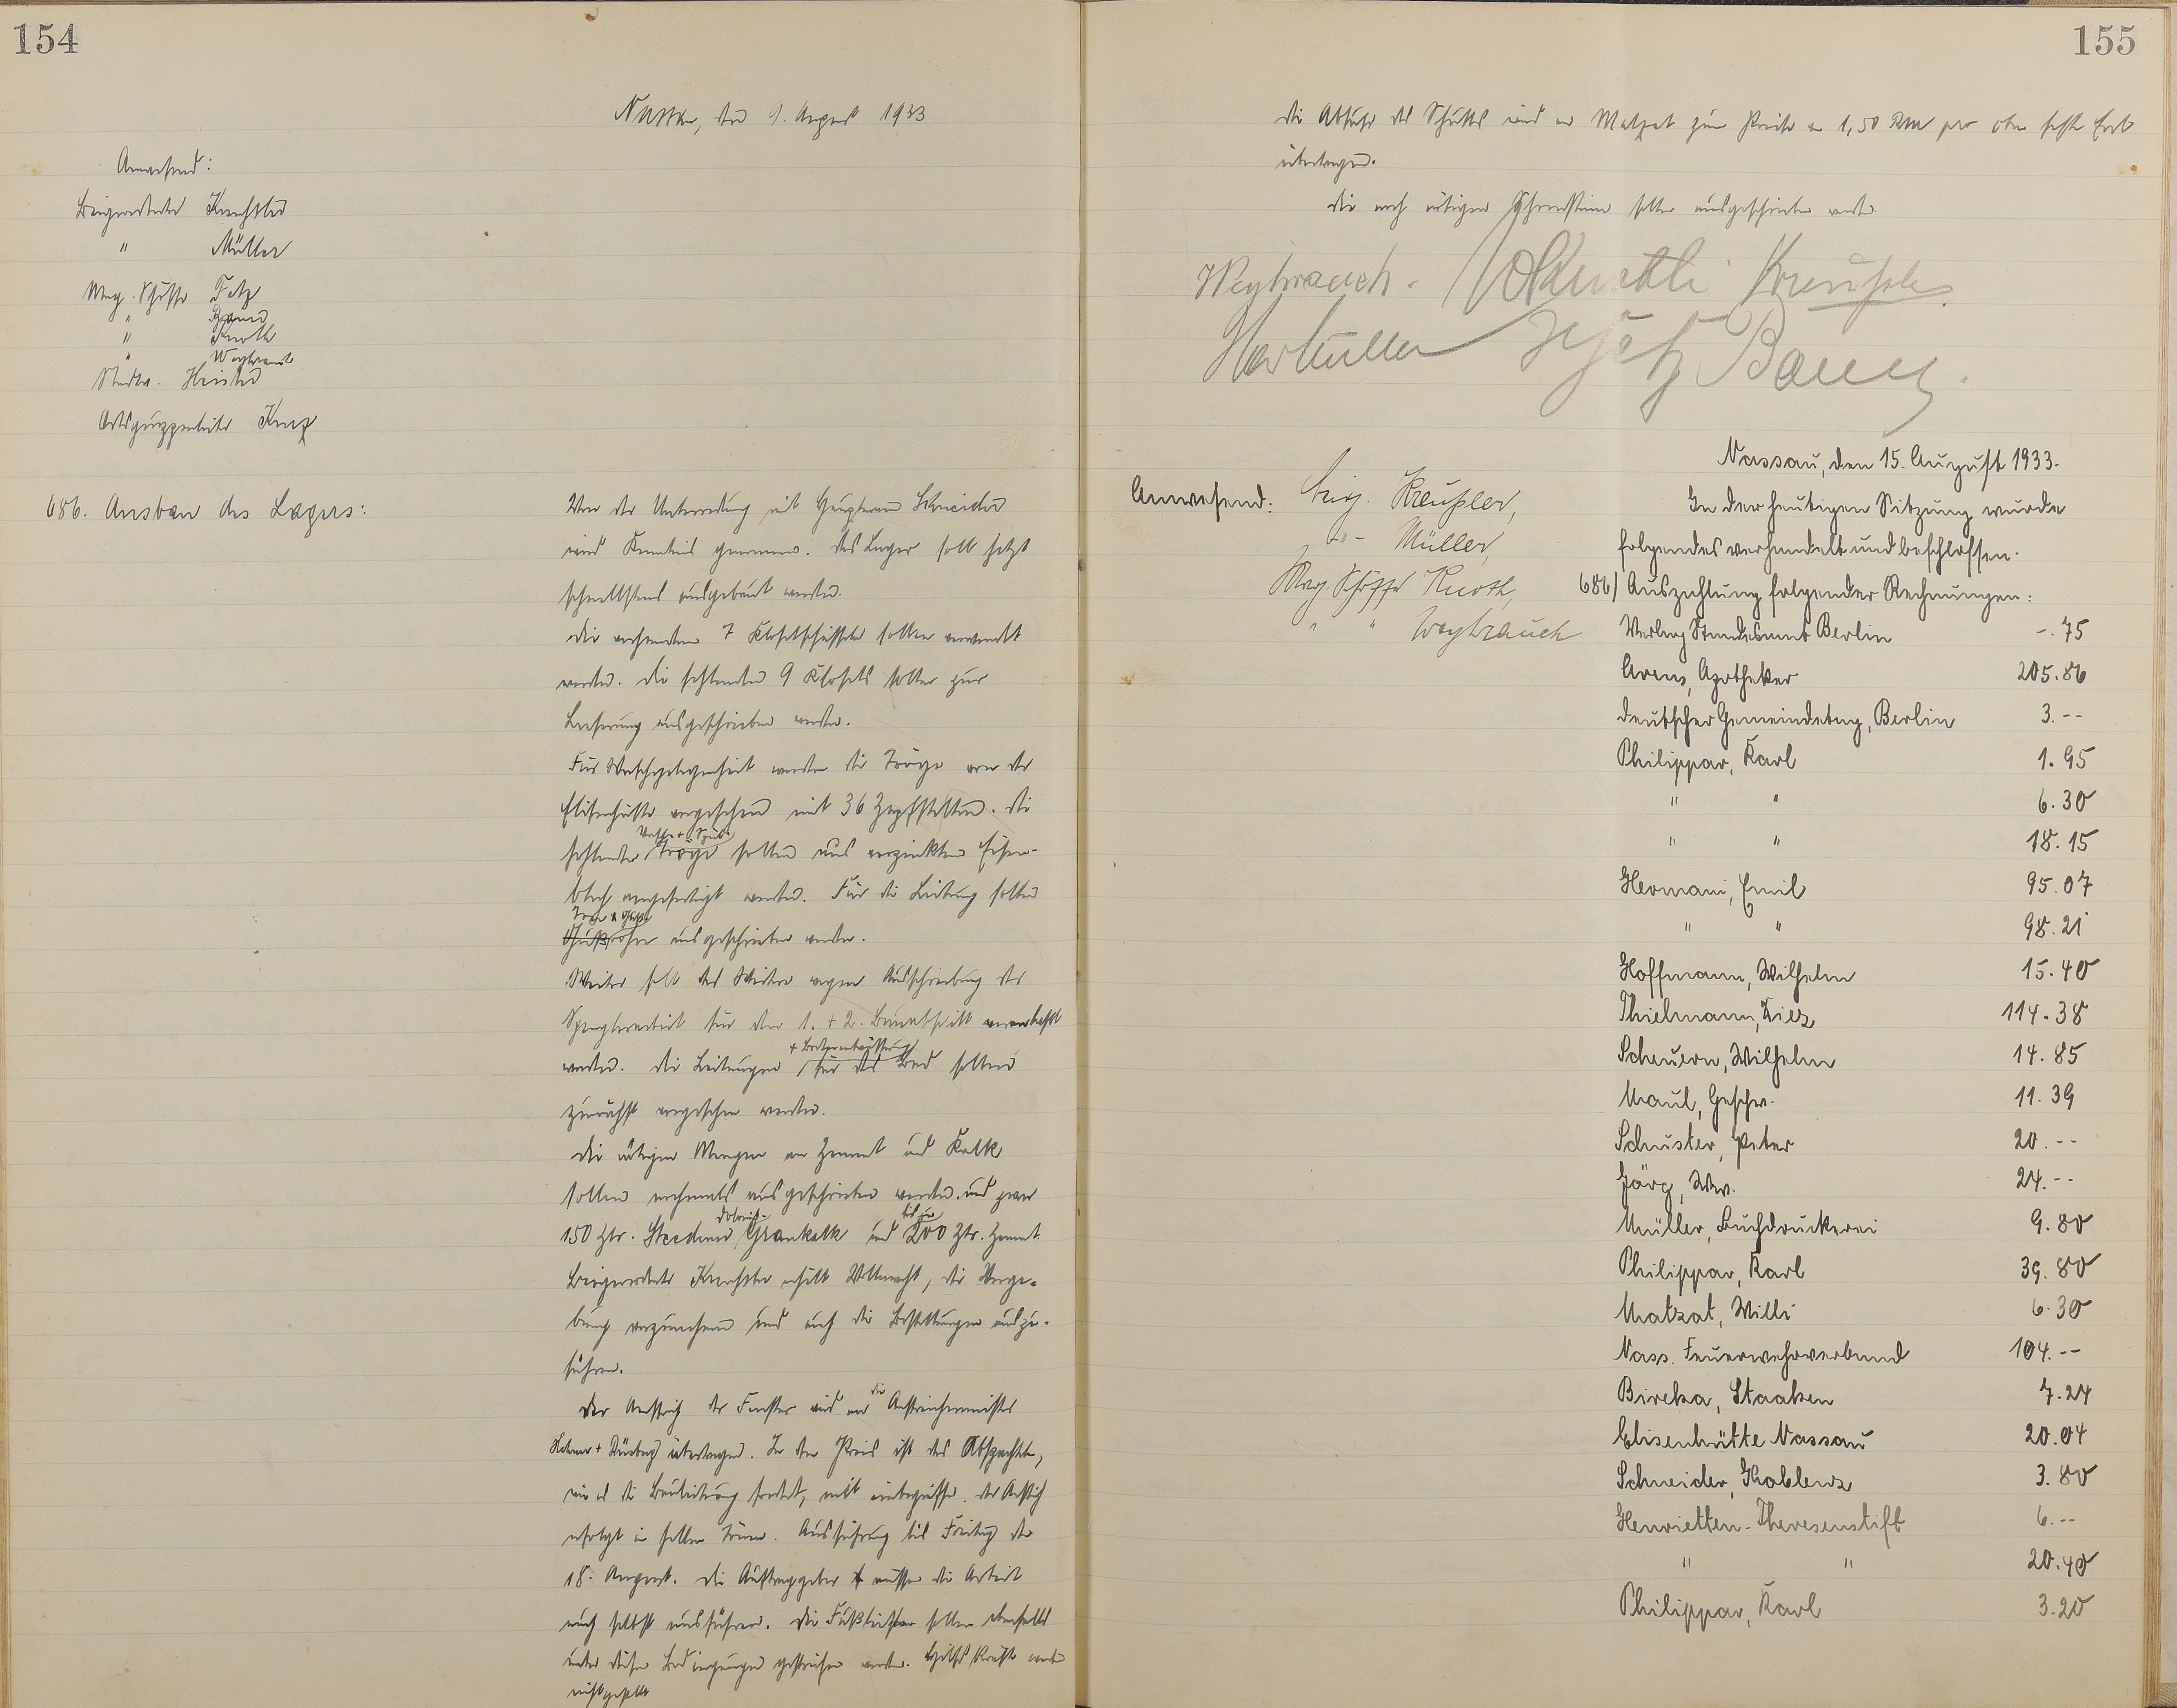 154
Nassau, den 9. August 1933
Anwesend:
Beigeordneter Kreußler
" Müller
Mag. Schöffe Fetz
" Baum
" Knoth
" Weyhrauch
Stadtv. Heister
Ortsgruppenleiter Kurz
686. Ausbau des Lagers:
Von der Unterredung mit Hauptmann Schneider
wird Kenntnis genommen. Das Lager soll jetzt
schnellstens ausgebaut werden.
Die vorhandenen 7 Klosetschüsseln sollen verwendet
werden. Die fehlenden 9 Klosets sollen zur
Lieferung ausgeschrieben werden.
Für Waschgelegenheit werden die Tröge von der
Elisenhütte vorgesehen mit 36 Zapfstellen. Die
fehlenden Wasch- + Spül- Tröge sollen aus verzinktem Eisen-
blech angefertigt werden. Für die Leitung sollen
ausgeschrieben werden.
Weiter soll des Weitern wegen Ausschreibung der
Spenglerarbeit für den 1. + 2. Bauabschnitt veranlaßt
werden. Die Leitungen + Bodenentwässerung für das Bad sollen
zunächst vorgesehen werden.
Die nötigen Mengen an Zement und Kalk
sollen nochmals ausgeschrieben werden und zwar
150 Ztr. Steedener Graukalk und bis zu 200 Ztr. Zement.
Beigeordneter Kreußler erhält Vollmacht, die Verge-
bung vorzunehmen und auch die Bestellungen auszu-
führen.
Der Anstrich der Fenster wird an die Anstreichermeister
übertragen. In dem Preis ist das
wie es die Bauleitung fordert, mit einbegriffen. Der Anstrich
erfolgt in hellen Tönen. Ausführung bis Freitag den
18. August. Die Auftraggeber müssen die Arbeit
auch selbst ausführen. Die Fußleisten sollen ebenfalls
unter diesen Bedingungen gestrichen werden. Hilfskräfte werden
nicht gestellt
155
Die Abfuhr des Schuttes wird an Matzat zum Preise von 1,50 RM pro cbm feste Erde
übertragen.
Die noch nötigen Schwemmsteine sollen ausgeschrieben werden.
Weyhrauch. Knoth Kreußler
Müller Fetz Baum.
Nassau, den 15. August 1933.
Anwesend: Beig. Kreußler,
-"- Müller,
Mag. Schöffe Knoth,
" " Weyhrauch
In der heutigen Sitzung wurde
folgendes verhandelt und beschlossen.
686) Auszahlung folgender Rechnungen:
Verlag Standesamt Berlin -.75
Arens, Apotheker 205.86
Deutscher Gemeindetag, Berlin 3.--
Philippar, Karl 1.95
" " 6.30
" " 18.15
Hermani, Emil 95.07
" " 98.21
Hoffmann, Wilhelm 15.40
Thielmann, Diez 114.38
Scheuern, Wilhelm 14.85
Maul, Geschw. 11.39
Schuster, Peter 20.--
Jörg, Ww. 24.--
Müller, Buchdruckerei 9.80
Philippar, Karl 39.80
Matzat, Willi 6.30
Nass. Feuerwehrverband 104.--
Bireka, Staaken 7.24
Elisenhütte Nassau 20.04
Schneider, Koblenz 3.80
Henrietten-Theresenstift 6.--
" " 20.40
Philippar, Karl 3.20